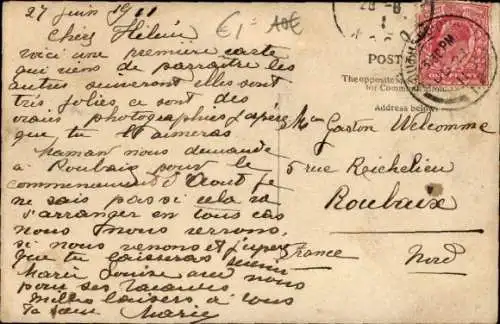 27 Juin 1911
€1= A0€
Chère Hélène
voici une première carte
qui viens de parraître les
autres suiveront elles sont
très jolies ce sont des
vrais photographies j'espère
que tu t'aimeras
Maman nous demande
à Roubaix pour le
commencement d'Août je
ne sais pas si cela va
s'arranger en tous cas
nous nous verrons,
si nous venons et j'espère
que tu laisseras venir
Marie Louise avec nous
pour ses vacances
Milles baisers à vous
Ta sœur Marie
28 6
POST
The opposite
for Comm
Address below
PM
Gaston Welcomme
5 rue Reichelieu
Roubaix
France Nord